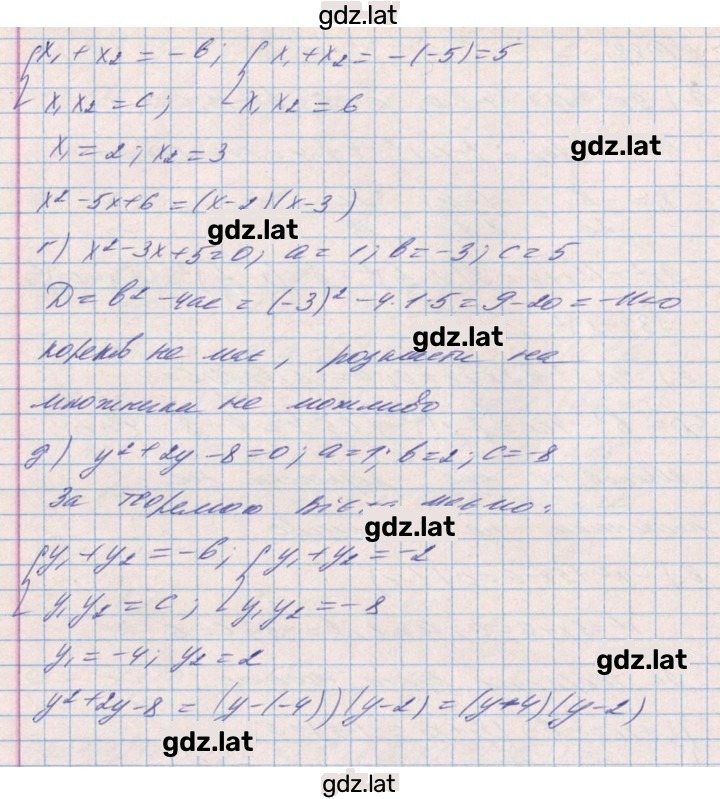 gdz.lat
x₁ + x₂ = -b; x₁ + x₂ = -(-5) = 5
x₁x₂ = c; x₁x₂ = 6
x₁ = 2; x₂ = 3
gdz.lat
x² - 5x + 6 = (x - 2)(x - 3)
gdz.lat
г) x² - 3x + 5 = 0; a = 1; b = -3; c = 5
D = b² - 4ac = (-3)² - 4·1·5 = 9 - 20 = -11 < 0
gdz.lat
коренів не має, розкласти на
множники не можливо
д) y² + 2y - 8 = 0; a = 1; b = 2; c = -8
За теоремою маємо:
gdz.lat
y₁ + y₂ = -b; y₁ + y₂ = -2
y₁y₂ = c; y₁y₂ = -8
y₁ = -4; y₂ = 2
gdz.lat
y² + 2y - 8 = (y - (-4))(y - 2) = (y + 4)(y - 2)
gdz.lat
gdz.lat